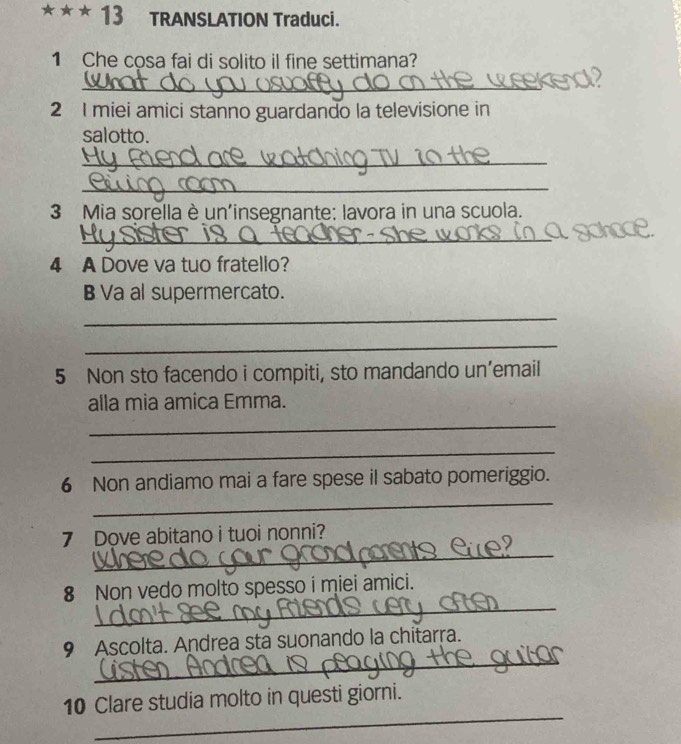 ★★★ 13 TRANSLATION Traduci.
1 Che cosa fai di solito il fine settimana?
What do you usually do on the weekend?
2 I miei amici stanno guardando la televisione in
salotto.
My friend are watching TV in the
living room
3 Mia sorella è un'insegnante: lavora in una scuola.
My sister is a teacher - she works in a school.
4 A Dove va tuo fratello?
B Va al supermercato.
5 Non sto facendo i compiti, sto mandando un'email
alla mia amica Emma.
6 Non andiamo mai a fare spese il sabato pomeriggio.
7 Dove abitano i tuoi nonni?
Where do your grandparents live?
8 Non vedo molto spesso i miei amici.
I don't see my friends very often
9 Ascolta. Andrea sta suonando la chitarra.
Listen Andrea is playing the guitar
10 Clare studia molto in questi giorni.